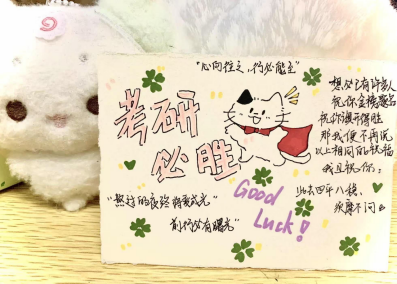 "心向往之,行必能至"
考研
必胜
想必已有许多人
祝你金榜题名
祝你旗开得胜
那我便不再说
以上相同的祝福
我且祝你:
此去四平八稳
"熬过的夜终将变成光"
前行必有曙光"
Good
Luck!